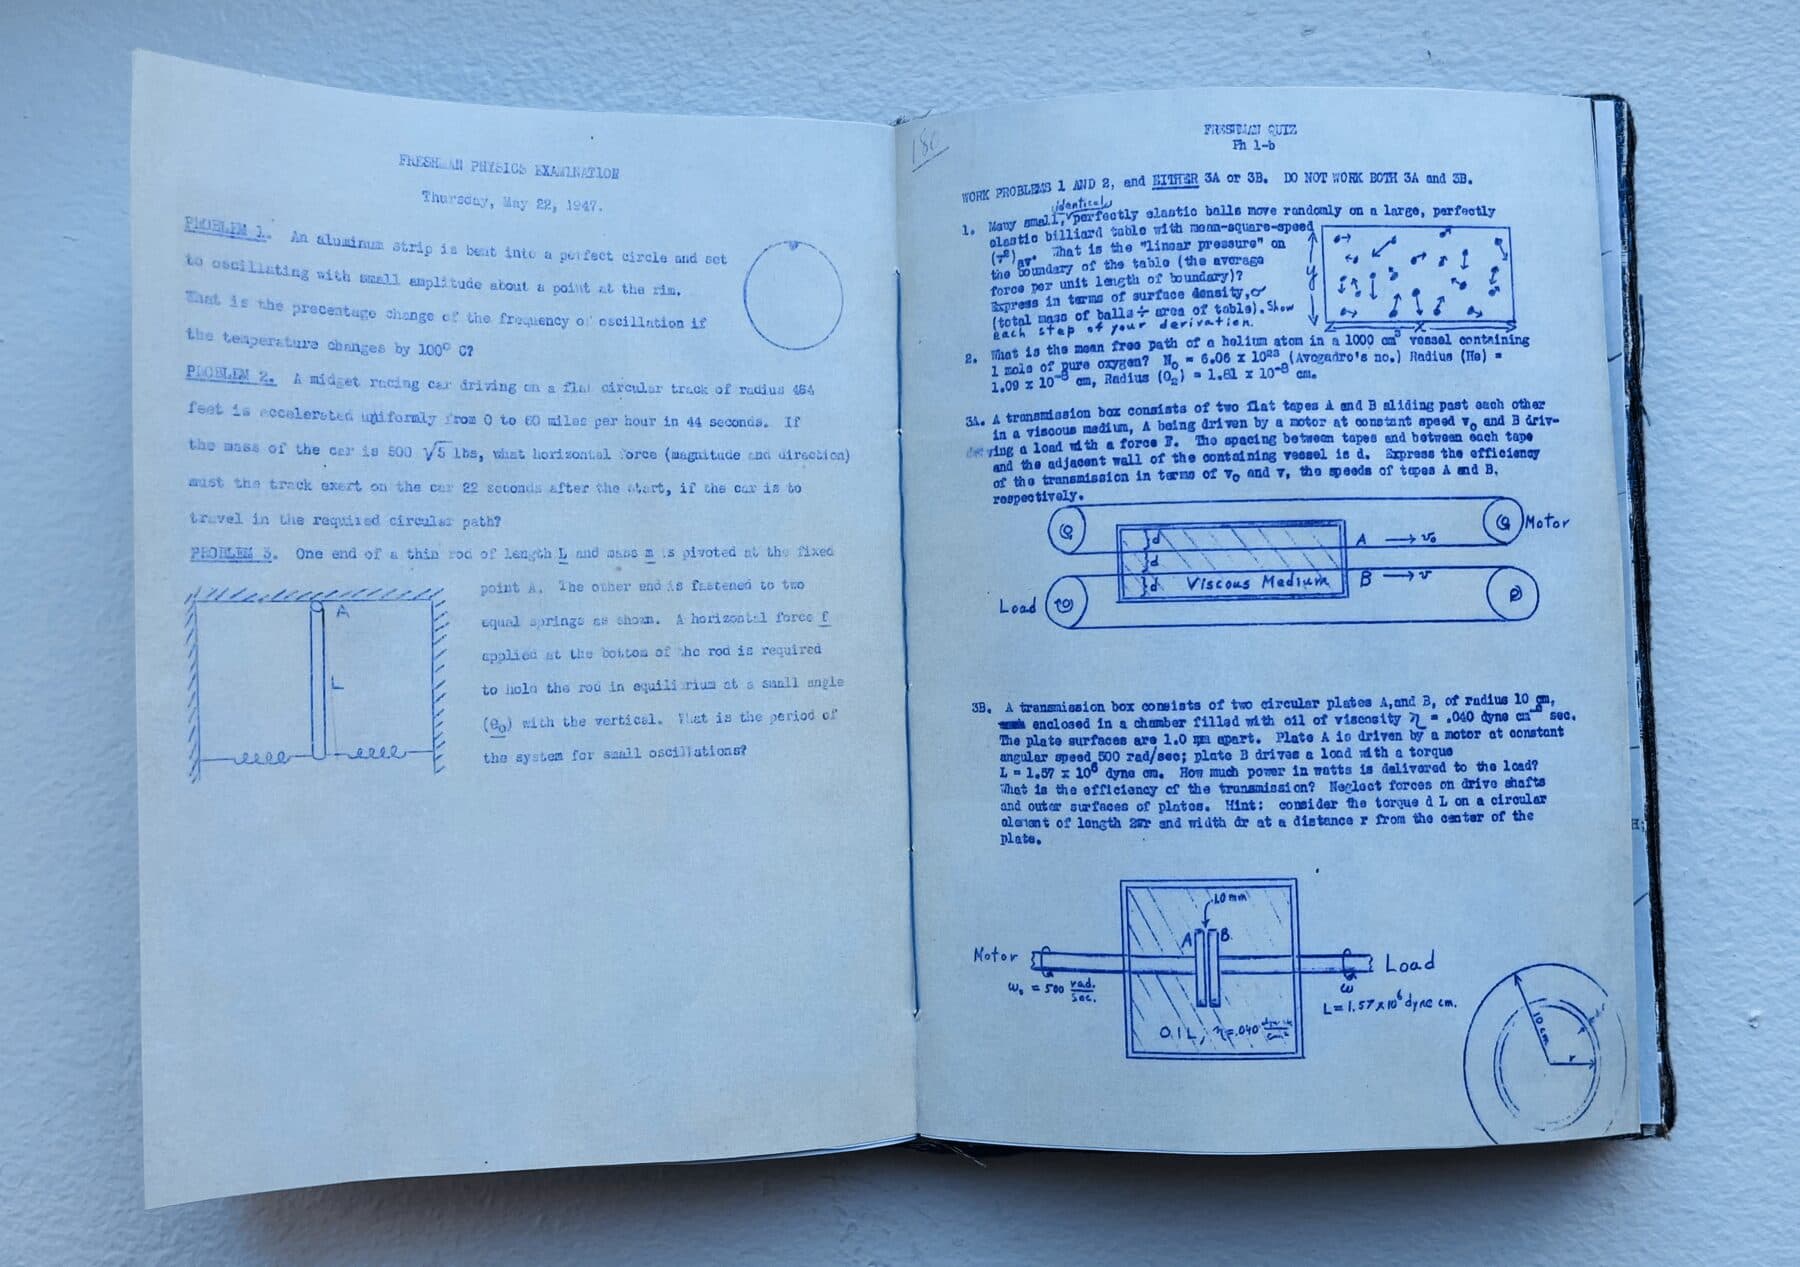 FRESHMAN PHYSICS EXAMINATION
Thursday, May 22, 1947.
PROBLEM 1. An aluminum strip is bent into a perfect circle and set
to oscillating with small amplitude about a point at the rim.
What is the precentage change of the frequency of oscillation if
the temperature changes by 100° C?
PROBLEM 2. A midget racing car driving on a flat circular track of radius 484
feet is accelerated uniformly from 0 to 60 miles per hour in 44 seconds. If
the mass of the car is 500 √5 lbs, what horizontal force (magnitude and direction)
must the track exert on the car 22 seconds after the start, if the car is to
travel in the required circular path?
PROBLEM 3. One end of a thin rod of length L and mass m is pivoted at the fixed
point A. The other end is fastened to two
equal springs as shown. A horizontal force f
applied at the bottom of the rod is required
to hold the rod in equilibrium at a small angle
(θ₀) with the vertical. What is the period of
the system for small oscillations?
A
L
FRESHMAN QUIZ
Ph 1-b
WORK PROBLEMS 1 AND 2, and EITHER 3A or 3B. DO NOT WORK BOTH 3A and 3B.
identical
1. Many small, perfectly elastic balls move randomly on a large, perfectly
elastic billiard table with mean-square-speed
(v²)av. What is the "linear pressure" on
the boundary of the table (the average
force per unit length of boundary)?
Express in terms of surface density, σ
(total mass of balls ÷ area of table). Show
each step of your derivation.
y
x
2. What is the mean free path of a helium atom in a 1000 cm³ vessel containing
1 mole of pure oxygen? N₀ = 6.06 x 10²³ (Avogadro's no.) Radius (He) =
1.09 x 10⁻⁸ cm, Radius (O₂) = 1.81 x 10⁻⁸ cm.
3A. A transmission box consists of two flat tapes A and B sliding past each other
in a viscous medium, A being driven by a motor at constant speed v₀ and B driv-
ving a load with a force F. The spacing between tapes and between each tape
and the adjacent wall of the containing vessel is d. Express the efficiency
of the transmission in terms of v₀ and v, the speeds of tapes A and B,
respectively.
Motor
d
A → v₀
d
d Viscous Medium
B → v
Load
3B. A transmission box consists of two circular plates A, and B, of radius 10 cm,
enclosed in a chamber filled with oil of viscosity η = .040 dyne cm⁻² sec.
The plate surfaces are 1.0 mm apart. Plate A is driven by a motor at constant
angular speed 500 rad/sec; plate B drives a load with a torque
L = 1.57 x 10⁶ dyne cm. How much power in watts is delivered to the load?
What is the efficiency of the transmission? Neglect forces on drive shafts
and outer surfaces of plates. Hint: consider the torque d L on a circular
element of length 2πr and width dr at a distance r from the center of the
plate.
1.0 mm
A B
Motor
Load
ω₀ = 500 rad./sec.
ω
L = 1.57 x 10⁶ dyne cm.
OIL, η = .040
10 cm
r